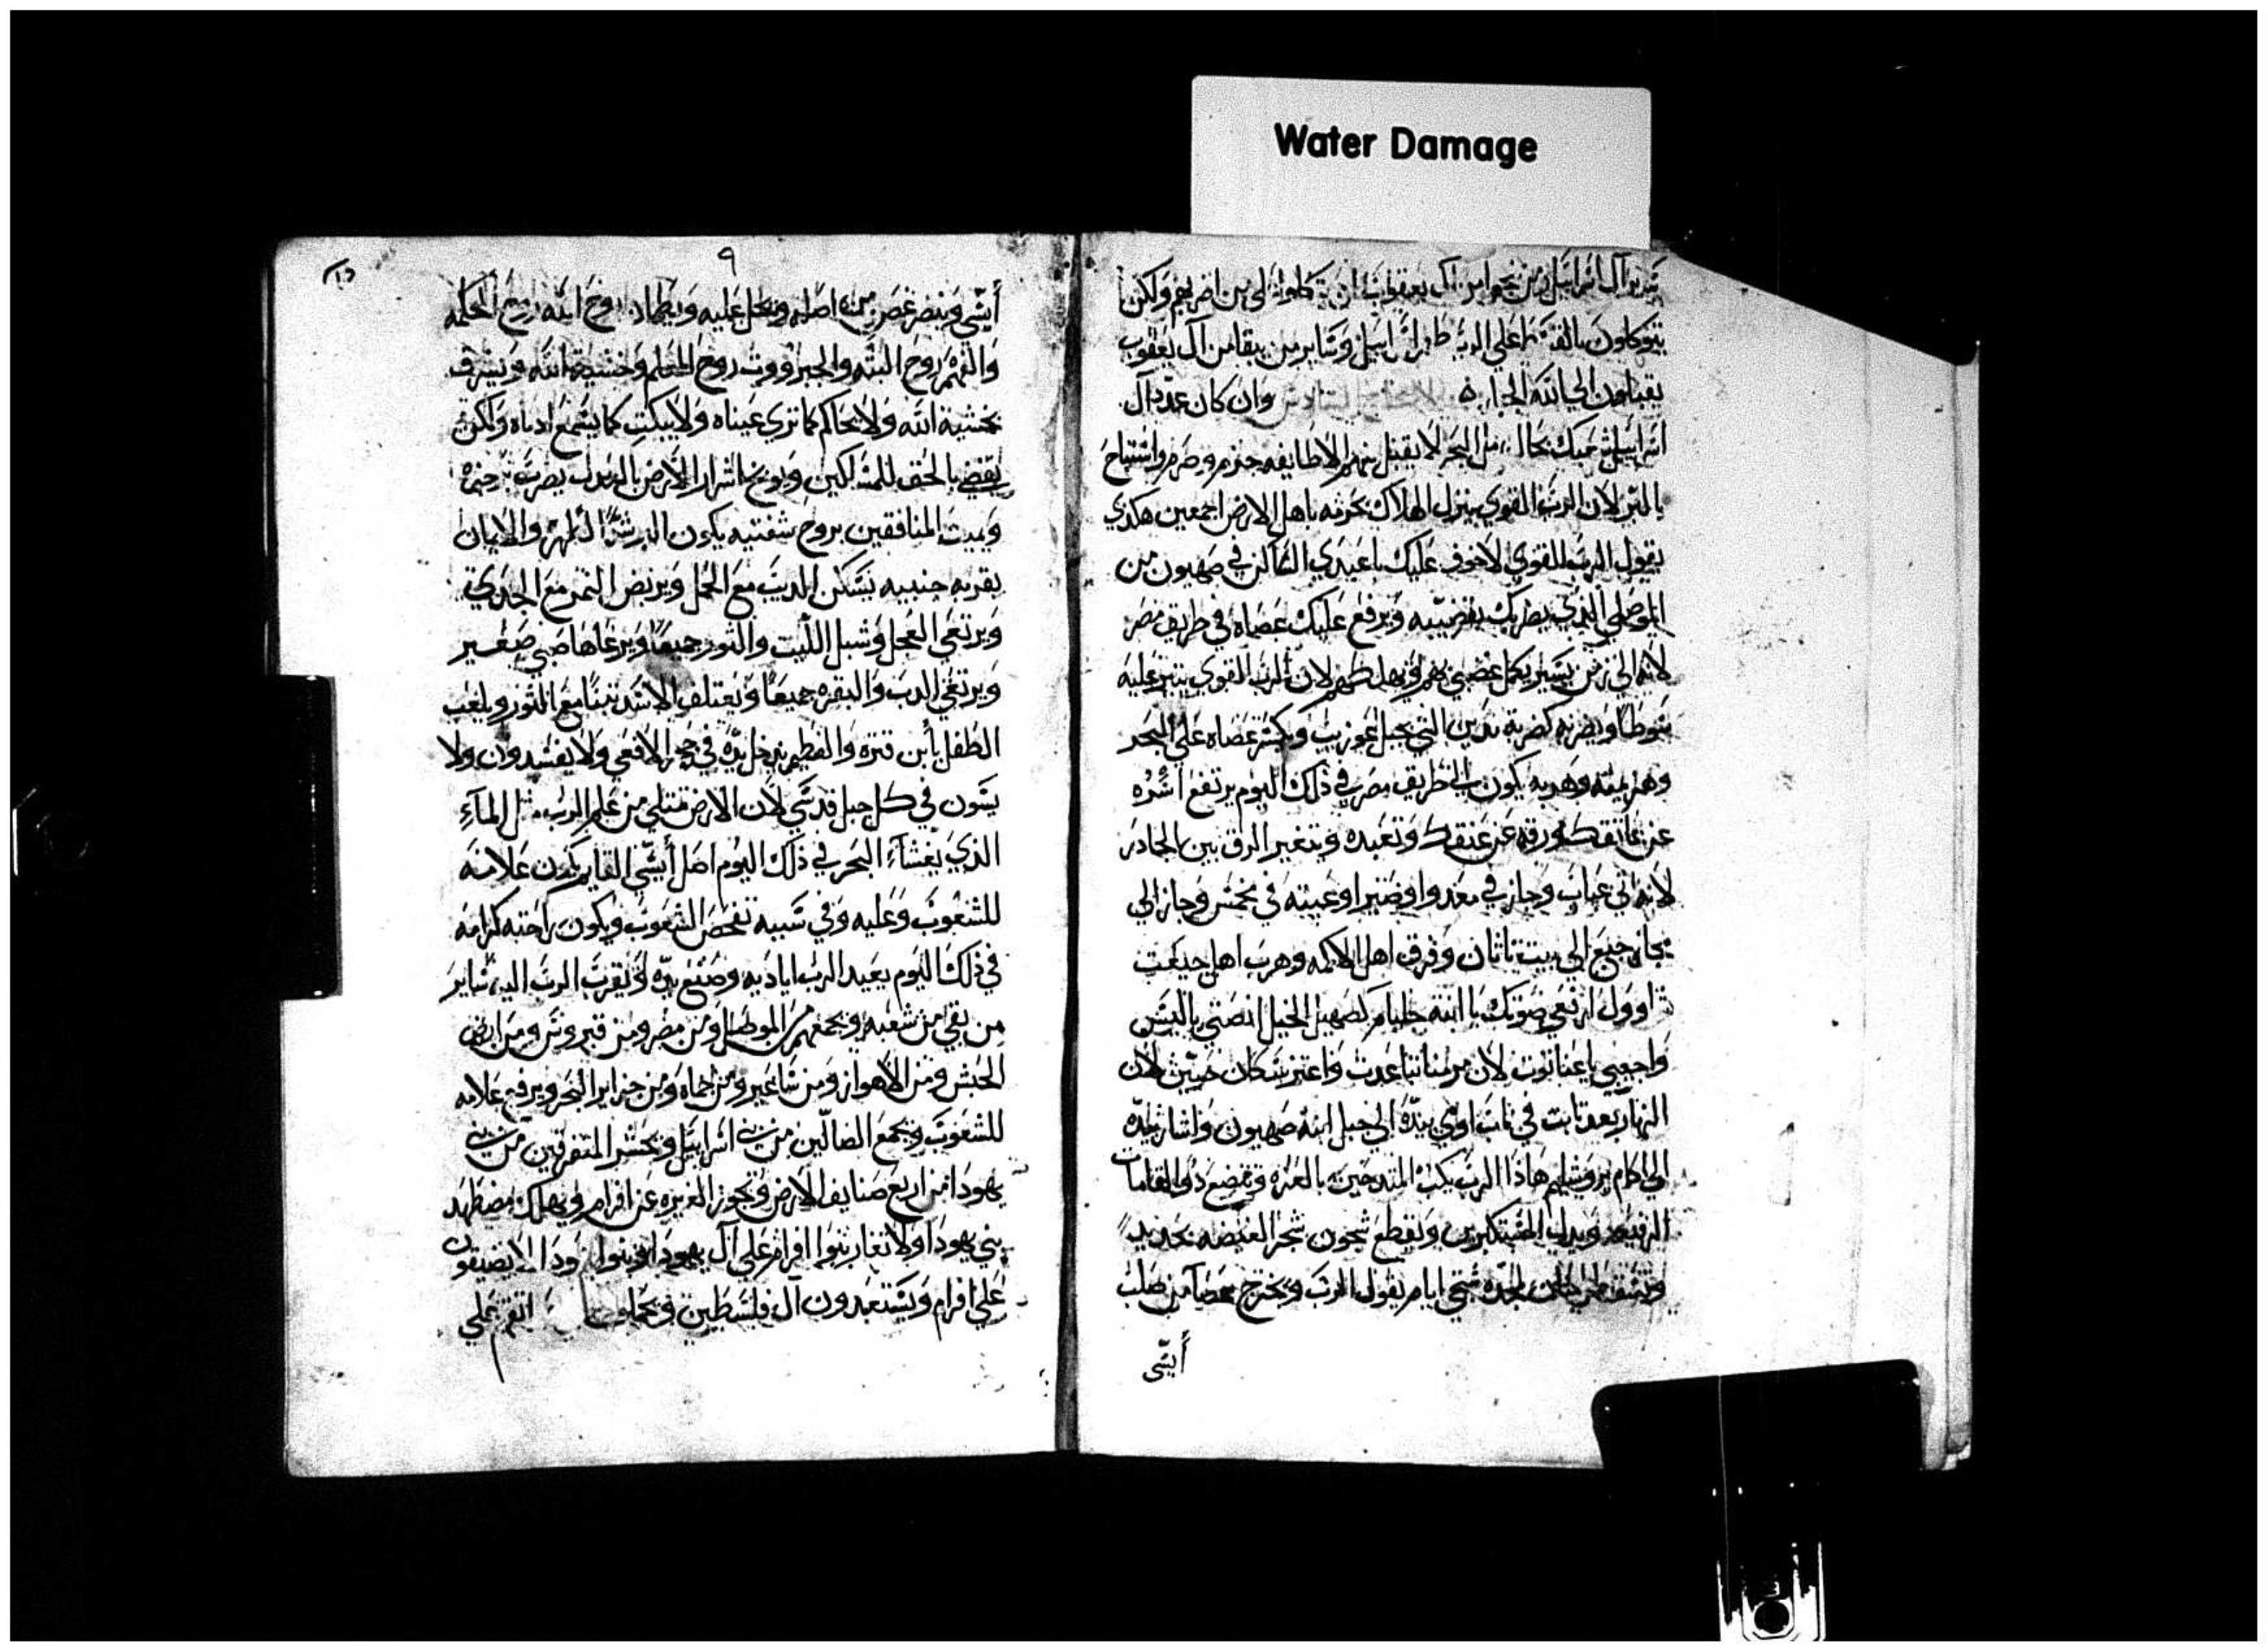 Water Damage
بقية آل اسراييل ومن نجوا من آل يعقوب ان يتكلوا الي من اضر بهم ولكن
يتوكلون بالقسط علي الرب طهر اسراييل وساير من بقا من آل يعقوب
يقبلون الي الله الجبار وان كان عدد آل
اسراييل شعبك بحال رمل البحر لا يقبل منهم الا طايفه جزم وصرم واستباح
بالبر لان الرب القوي ينزل الهلاك بحرثه باهل الارض اجمعين هكذي
يقول الرب القوي لا خوف عليك يا عبدي الساكن في صهيون من
الموصلي الذي يضربك بقضيبه ويرفع عليك عصاه في طريق مصر
لانه الي زمن يسير يكمل غضبي بهم ويهلكهم لان الرب القوي يثير عليه
سوطا ويضربه كضربة مدين التي بجبل عوزيب ويكسر عصاه علي البحر
وهزيمته وهربه يكون الي طريق مصر في ذلك اليوم يرتفع اسره
عن عاتقك ورقه عن عنقك وتعبده ويتغير الرق بين
لانه اتي عباب وجاز في معدوا وصير اوعيته في مخمس وجاز الي
مجاز جبع الي بيت تاثان وفرق اهل الاكمه وهرب اهل جبعت
شاوول ارفعي صوتك يا ابنة جليام كصهيل الخيل انصتي ياليش
واجيبي يا عناتوت لان مرمنا تباعدت واعتز سكان جيبين لان
النهار بعد ثابت في ناب اوي بيده الي جبل ابنة صهيون واشار بيده
الي اكام يروشليم هاذا الرب يكب المتدحين بالعزه وتضع ذوي القامات
الرفيعه ويذل المستكبرين ويقطع شجون شجر الغيضه بحديد
ايام يقول الرب ويخرج عصا من صلب
أيسّي
٩
أيسّي وينضر غصن من اصله ويحل عليه ويطماد روح الله روح الحكمه
والفهم روح البته والجبرووت روح العلم وخشية الله ويشرف
بخشية الله ولا يحاكم كما تري عيناه ولا يبكت كما يسمع ادناه ولكن
يقضي بالحق للمساكين ويوبخ اشرار الارض بالعدل يضرب
ويميت المنافقين بروح شفتيه يكون البر شدا لظهره والايمان
بقربه جنبيه يسكن الديب مع الحمل ويربض النمر مع الجدي
ويرتعي العجل وشبل الليث والثور جميعا ويرعاها صبي صغير
ويرتعي الدب والبقره جميعا ويعتلف الاسد تبنا مع الثور ويلعب
الطفل بابن قتره والفطيم يدخل يده في جحر الافعي ولا يفسدون ولا
يسون في كل جبل قدسي لان الارض تمتلي من علم الرب مثل المآء
الذي يغشاء البحر في ذلك اليوم اصل أيسّي القايم يكون علامه
للشعوب وعليه وفي سببه تفحص الشعوب ويكون راحته كرامه
في ذلك اليوم يعيد الرب اياديه وصنع يده ويقرب الرب اليه ساير
من بقي من شعبه ويجمعهم من الموصل ومن مصر ومن قبروس ومن ارض
الحبش ومن الاهواز ومن ساعير ومن حماه ومن جزاير البحر ويرفع علامه
للشعوب ويجمع الضالين من بني اسراييل ويحشر المتفرقين من بني
يهودا من اربع صنايف الارض وتجوز الغيره عن افرام ويهلك مضطهد
بني يهودا ولا تغار بنوا افرام علي آل يهودا وبنوا يهودا لا يضيقون
علي افرام ويستعبدون آل فلسطين انقم علي